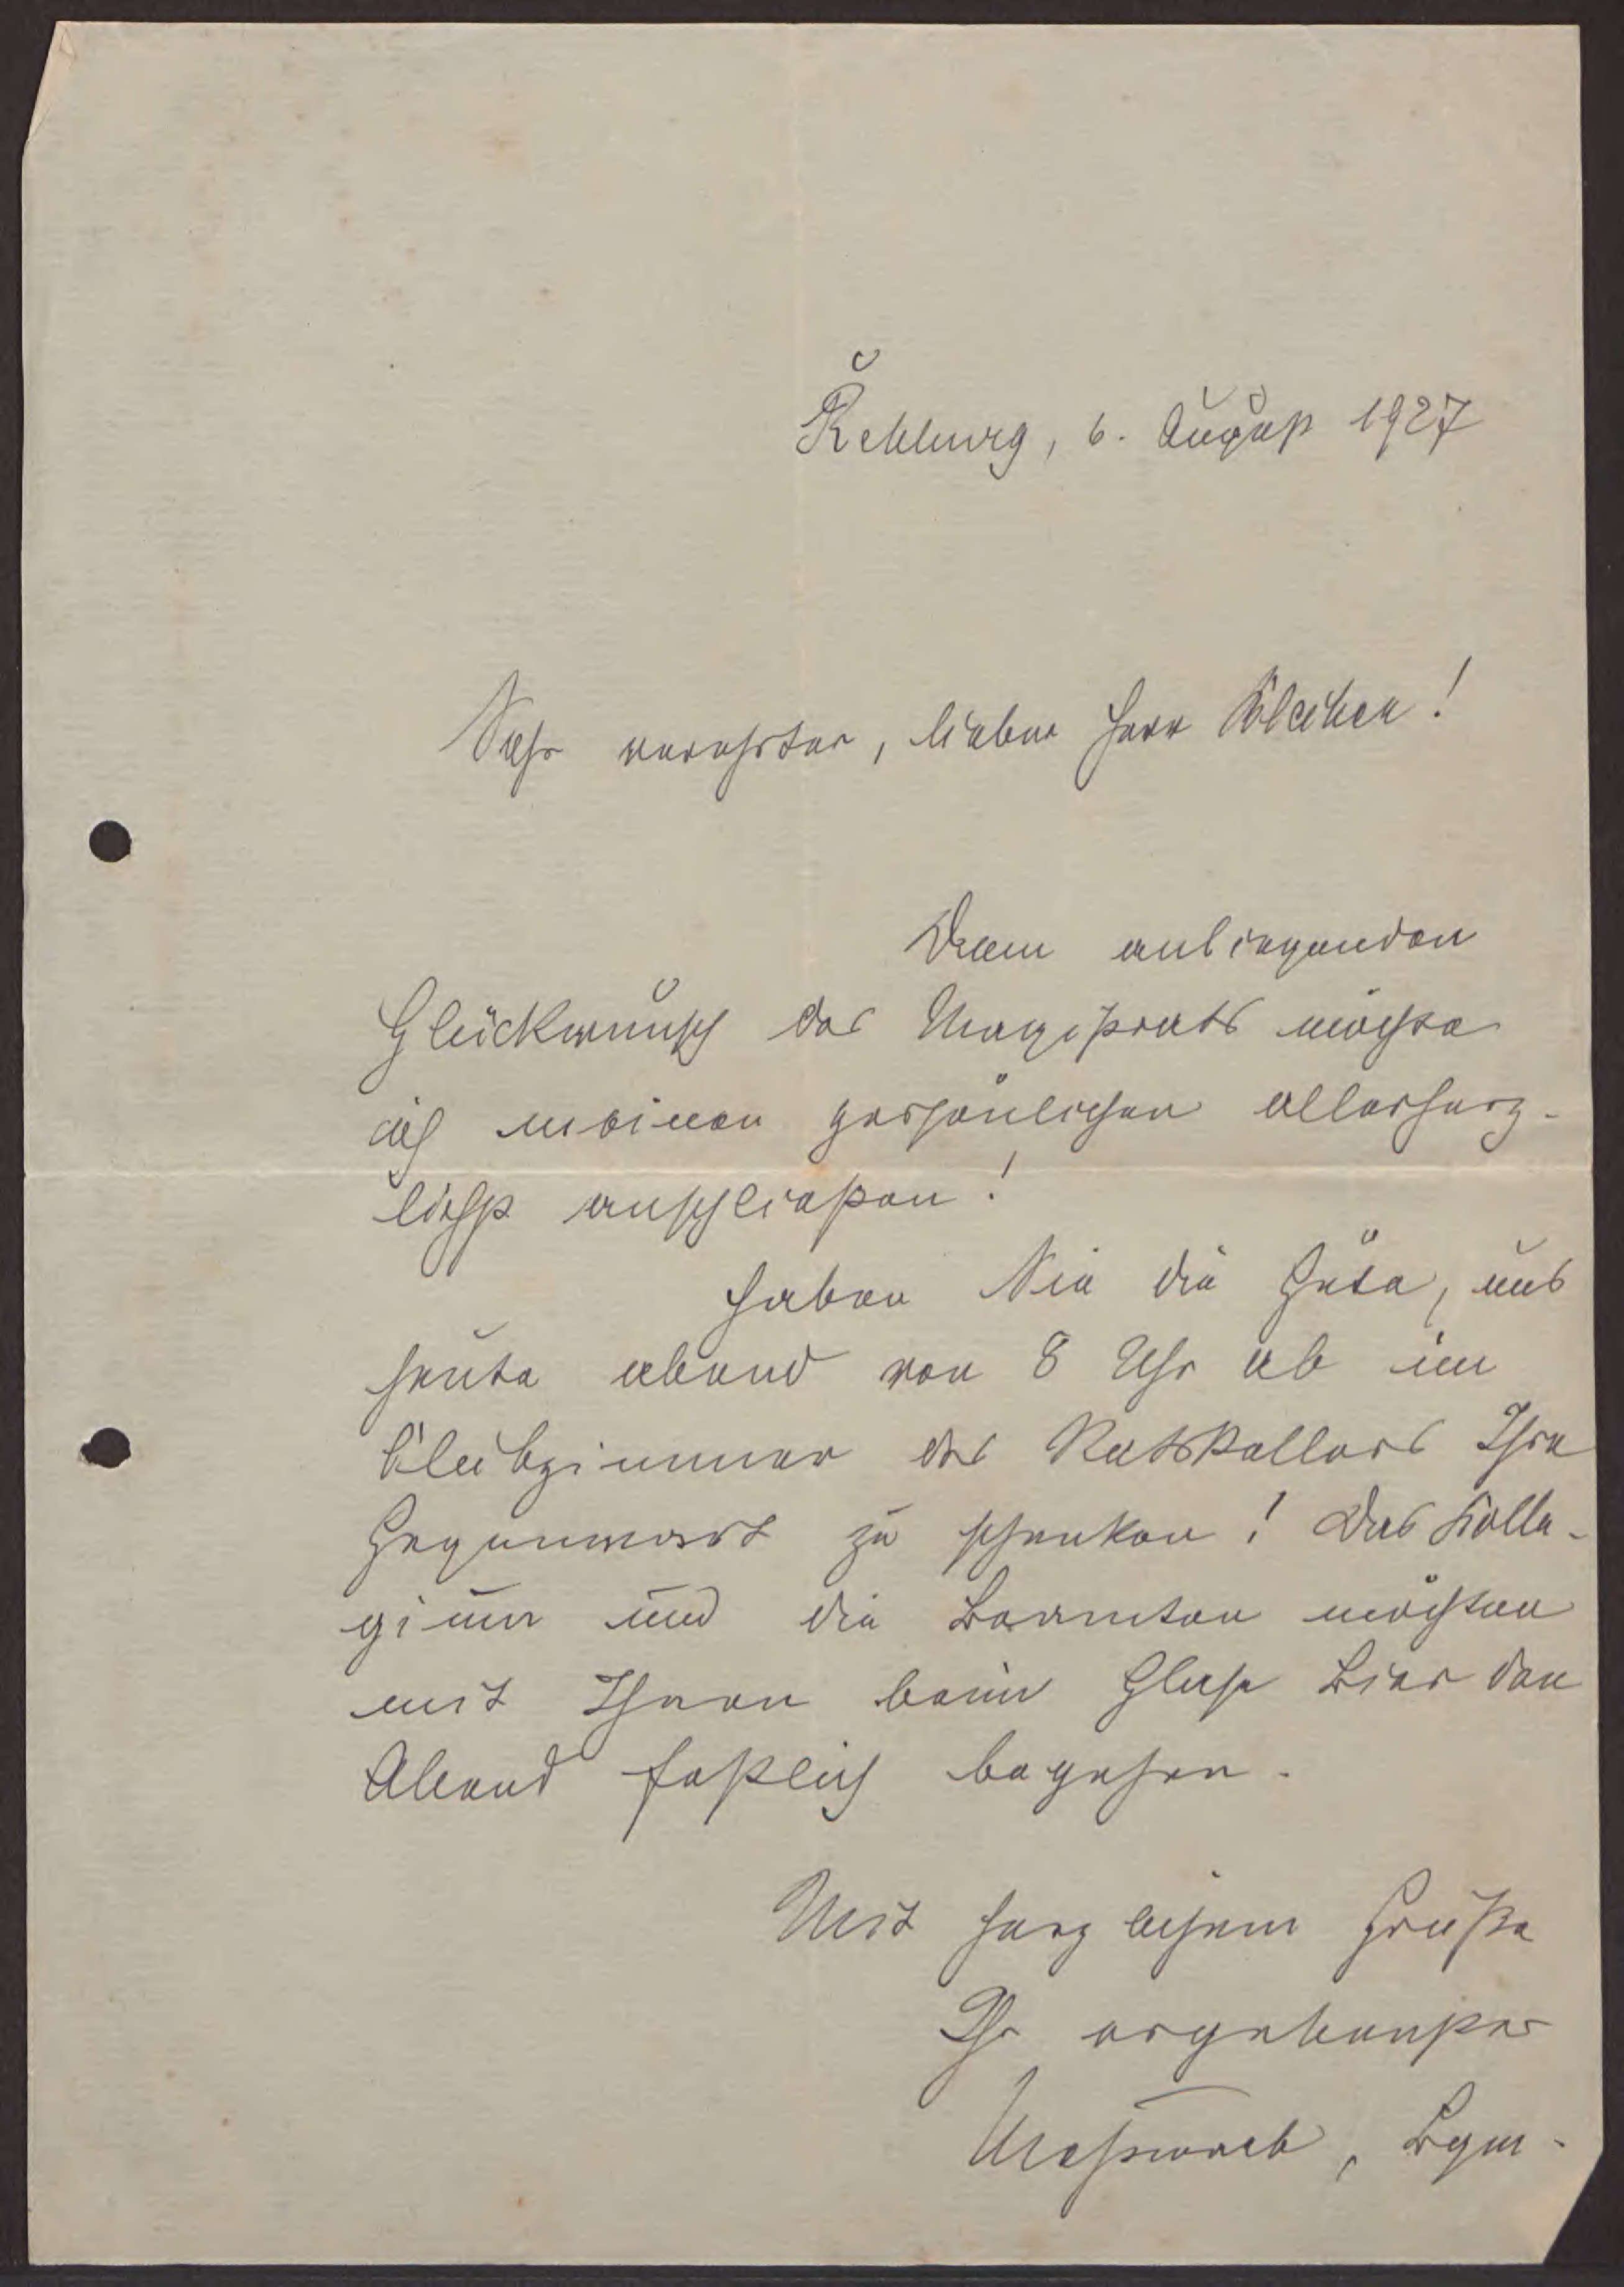 Rehburg, 6. August 1927
Sehr verehrter, lieber Herr
Dem anliegenden
Glückwunsch des Magistrats möchte
ich meinen persönlichen allerherz-
lichst anschließen!
Haben Sie die Güte, uns
heute abend von 8 Uhr ab im
Clubzimmer des Ratskellers Ihre
Gegenwart zu schenken! Das Kolle-
gium und die Beamten möchten
mit Ihnen beim Glase Bier den
Abend festlich begehen.
Mit herzlichem Gruße
Ihr ergebenster
Meßwarb, Bgm.